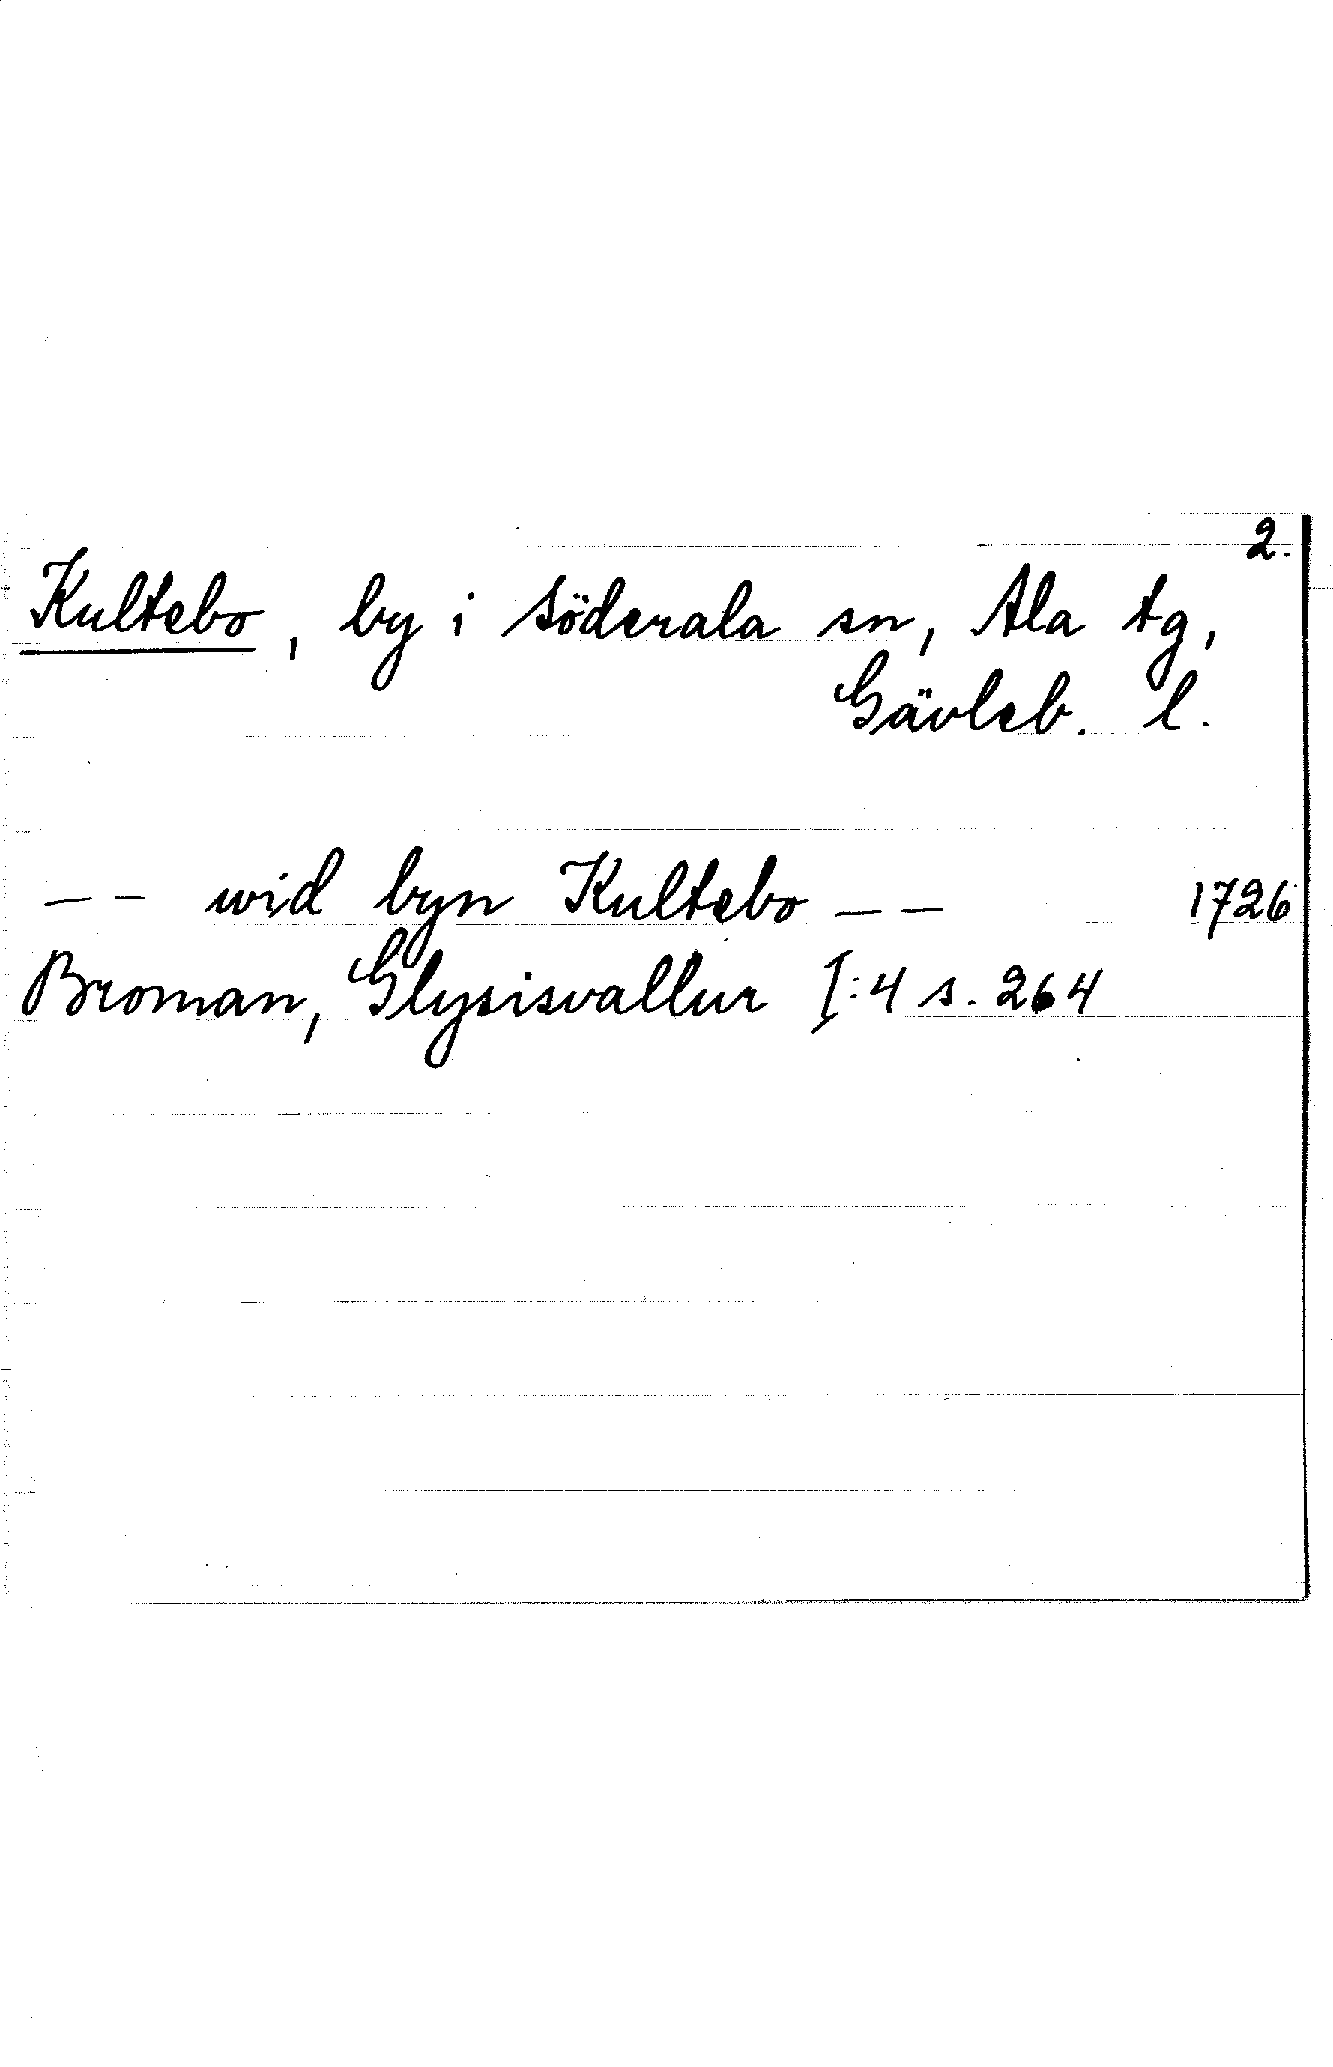 2.
Kultebo, by i Söderala sn, Ala tg,
Gävleb. l.
-- wid byn Kultebo -- 1726
Broman, Glysisvallur I:4 s. 264